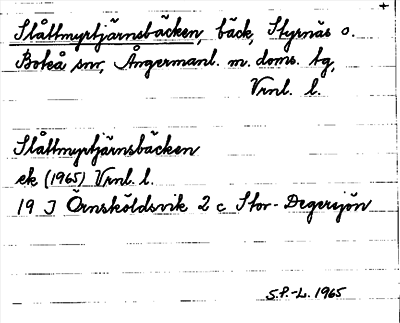 Slåttmyrtjärnsbäcken, bäck, Styrnäs o.
Boteå snr, Ångermanl. m. doms. tg,
Vrnl. l.
Slåttmyrtjärnsbäcken
ek (1965) Vrnl. l.
19 J Örnsköldsvik 2 c Stor-Degersjön
S.P.-L. 1965